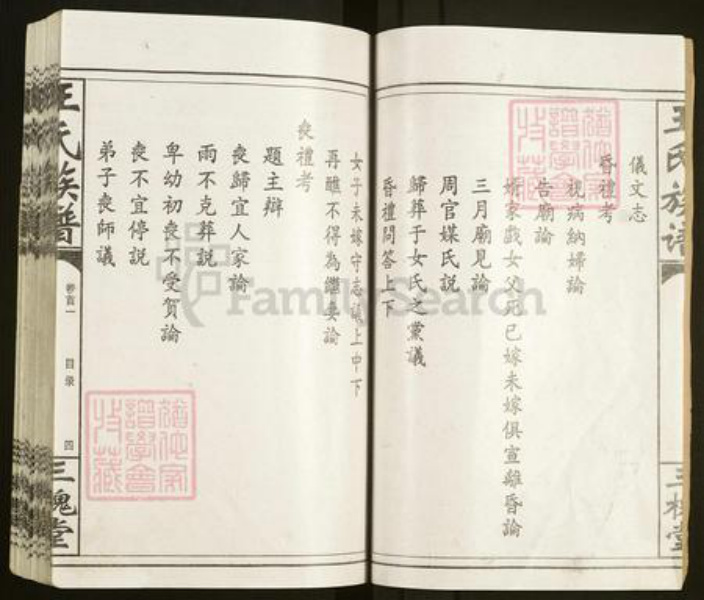 王氏族譜
三槐堂
儀文志
昏禮考
視病納婦論
告廟論
婿家戲女父死已嫁未嫁俱宣離昏論
三月廟見論
周官媒氏說
歸葬于女氏之黨議
昏禮問答上下
女子未嫁守志議上中下
再醮不得為繼妻論
喪禮考
題主辯
喪歸宜人家論
雨不克葬說
卑幼初喪不受賀論
喪不宜停說
弟子喪師議
王氏族譜
卷首一
目录
四
三槐堂
譜學會
收藏
FamilySearch